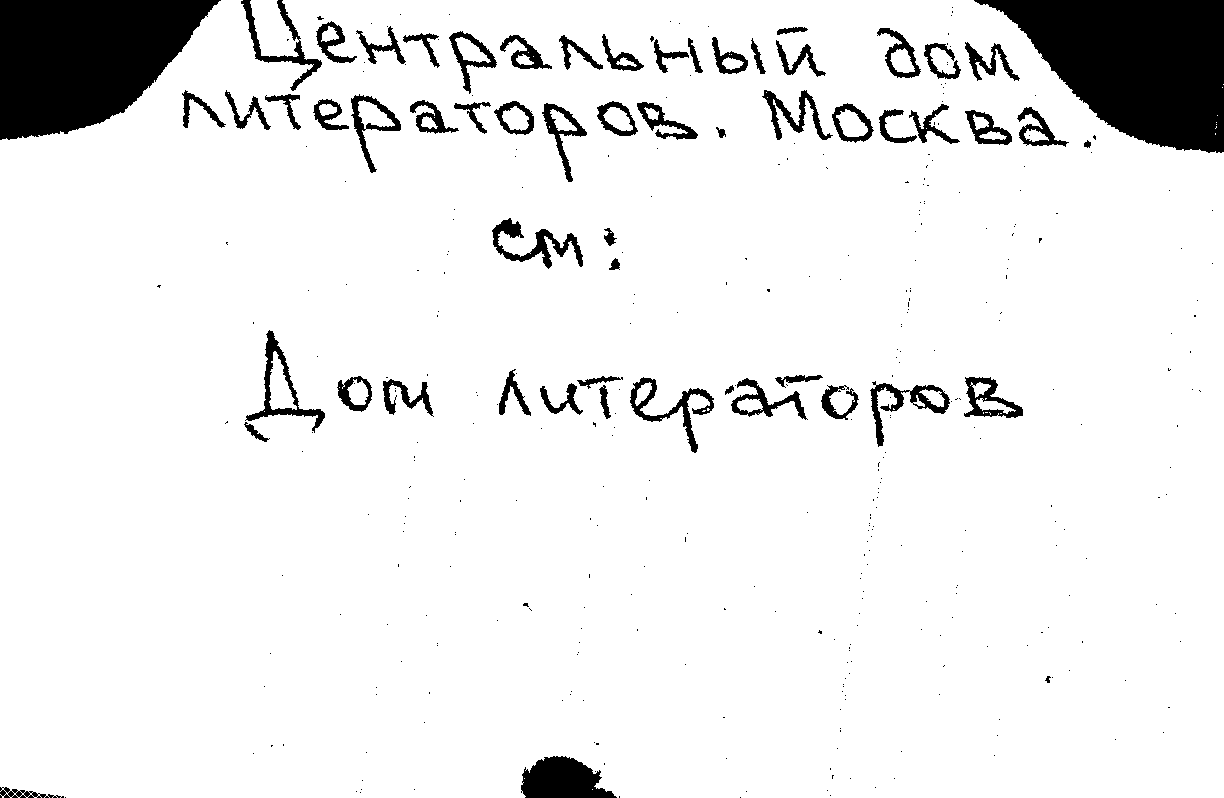 Центральный дом
литераторов. Москва.
см:
Дом литераторов